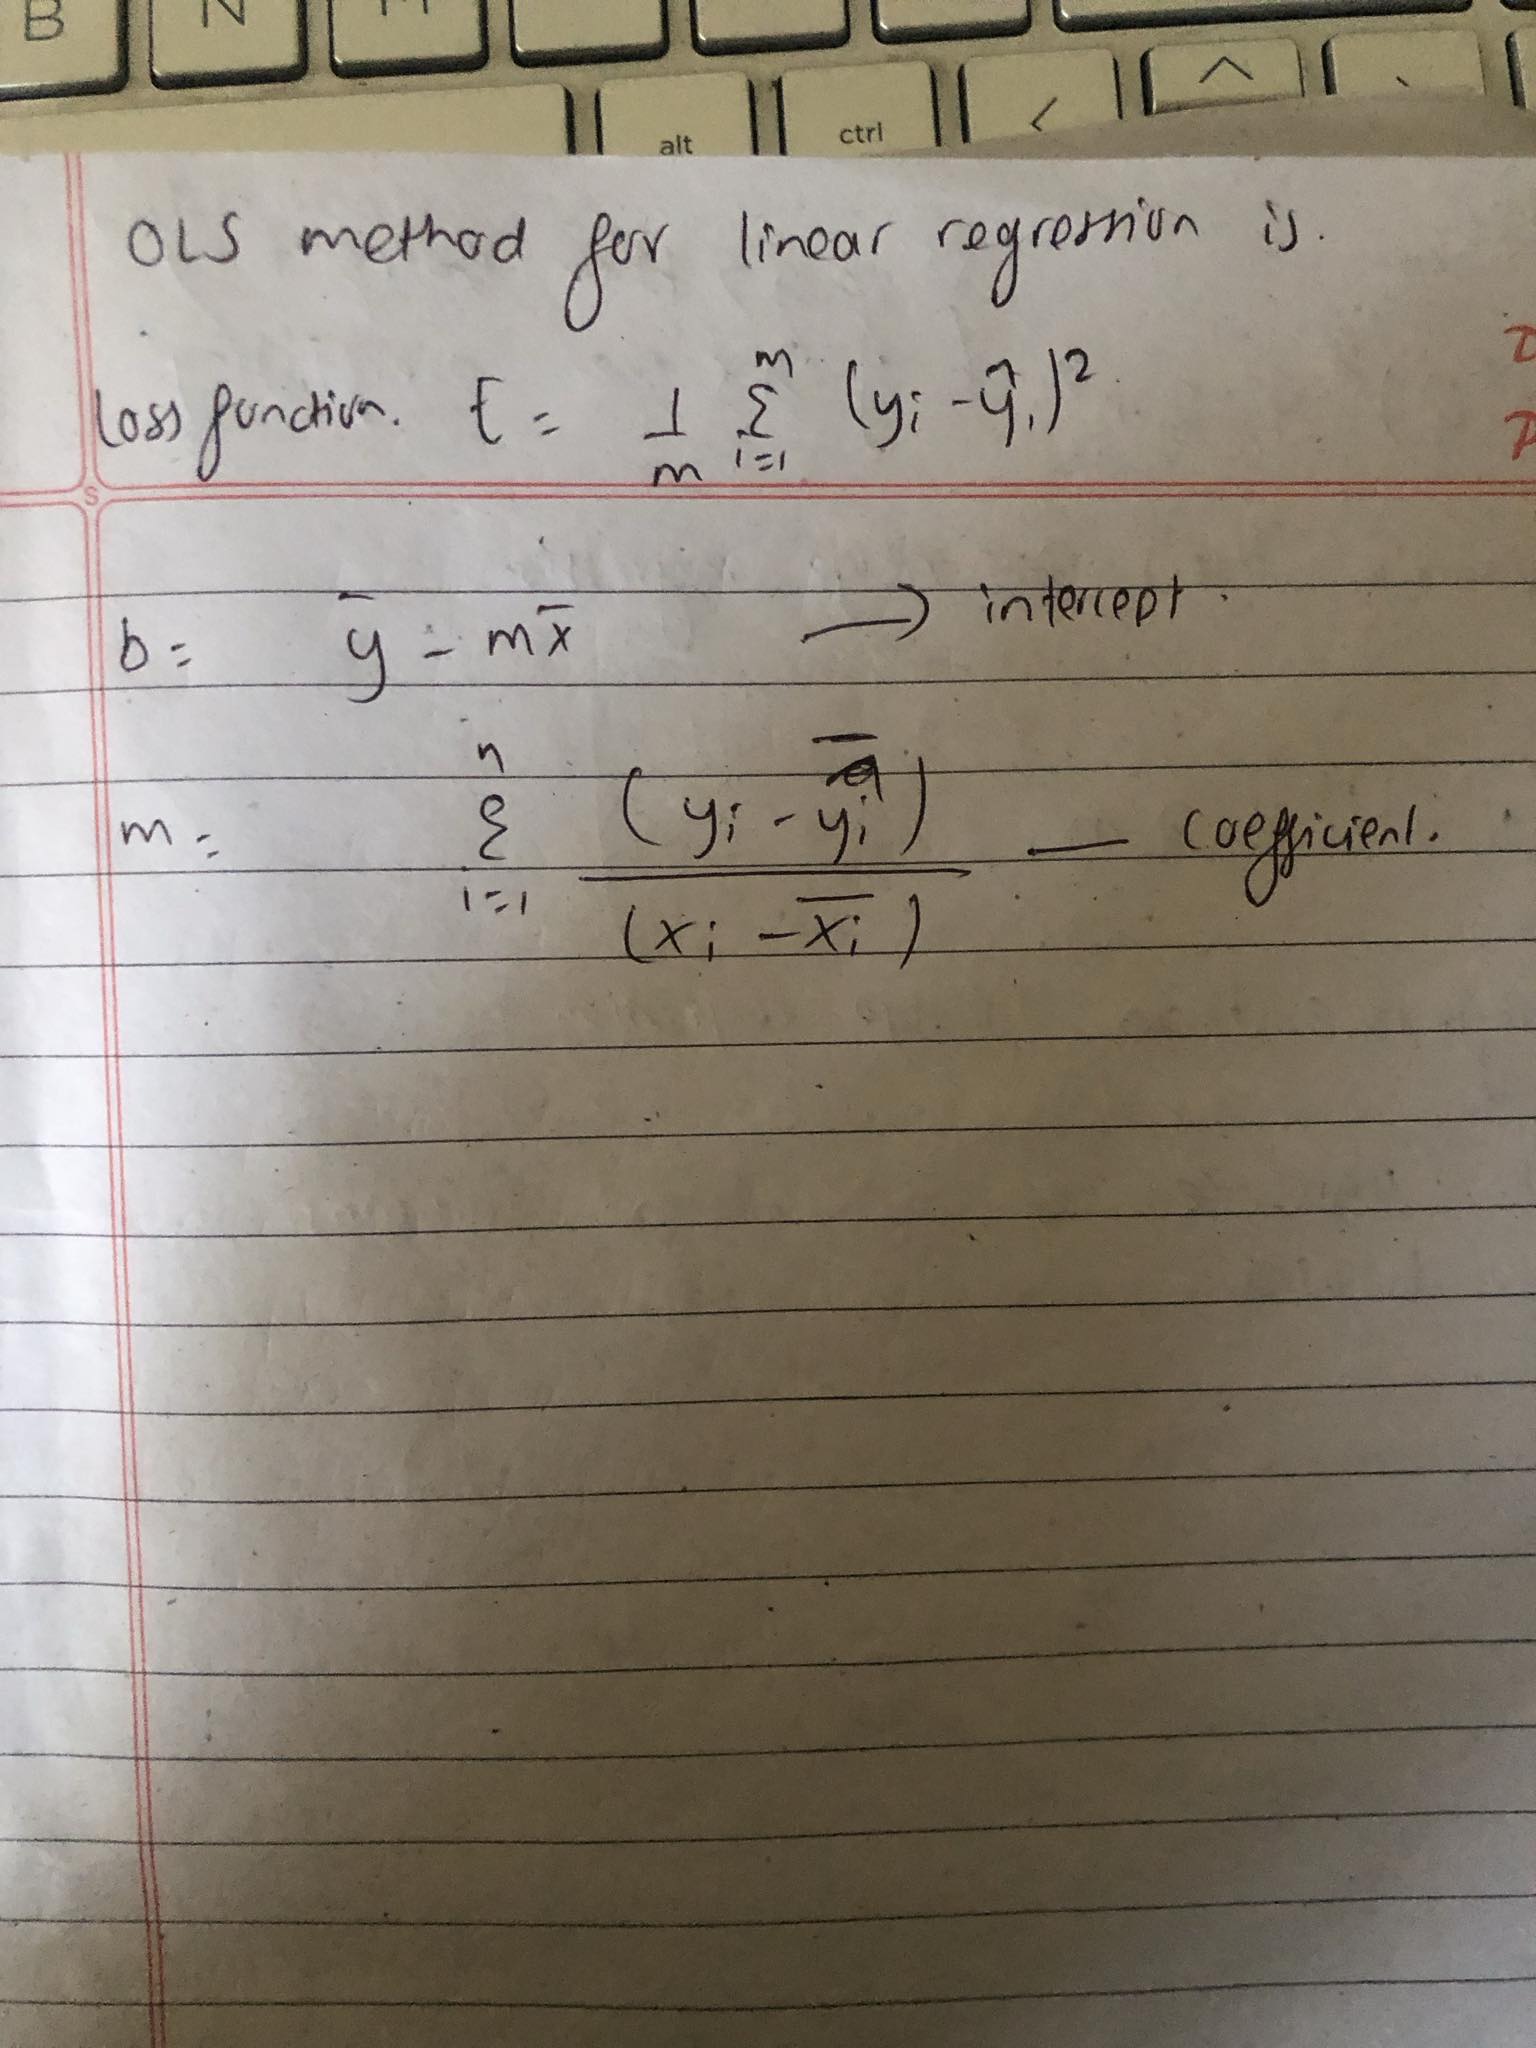 B N M
alt ctrl < ^
OLS method for linear regression is.
loss function. E = 1/m Σ_{i=1}^{m} (yi - ŷi)²
S
b = ȳ - mx̄ → intercept.
m = Σ_{i=1}^{n} (yi - ȳi) / (xi - x̄i) — coefficient.